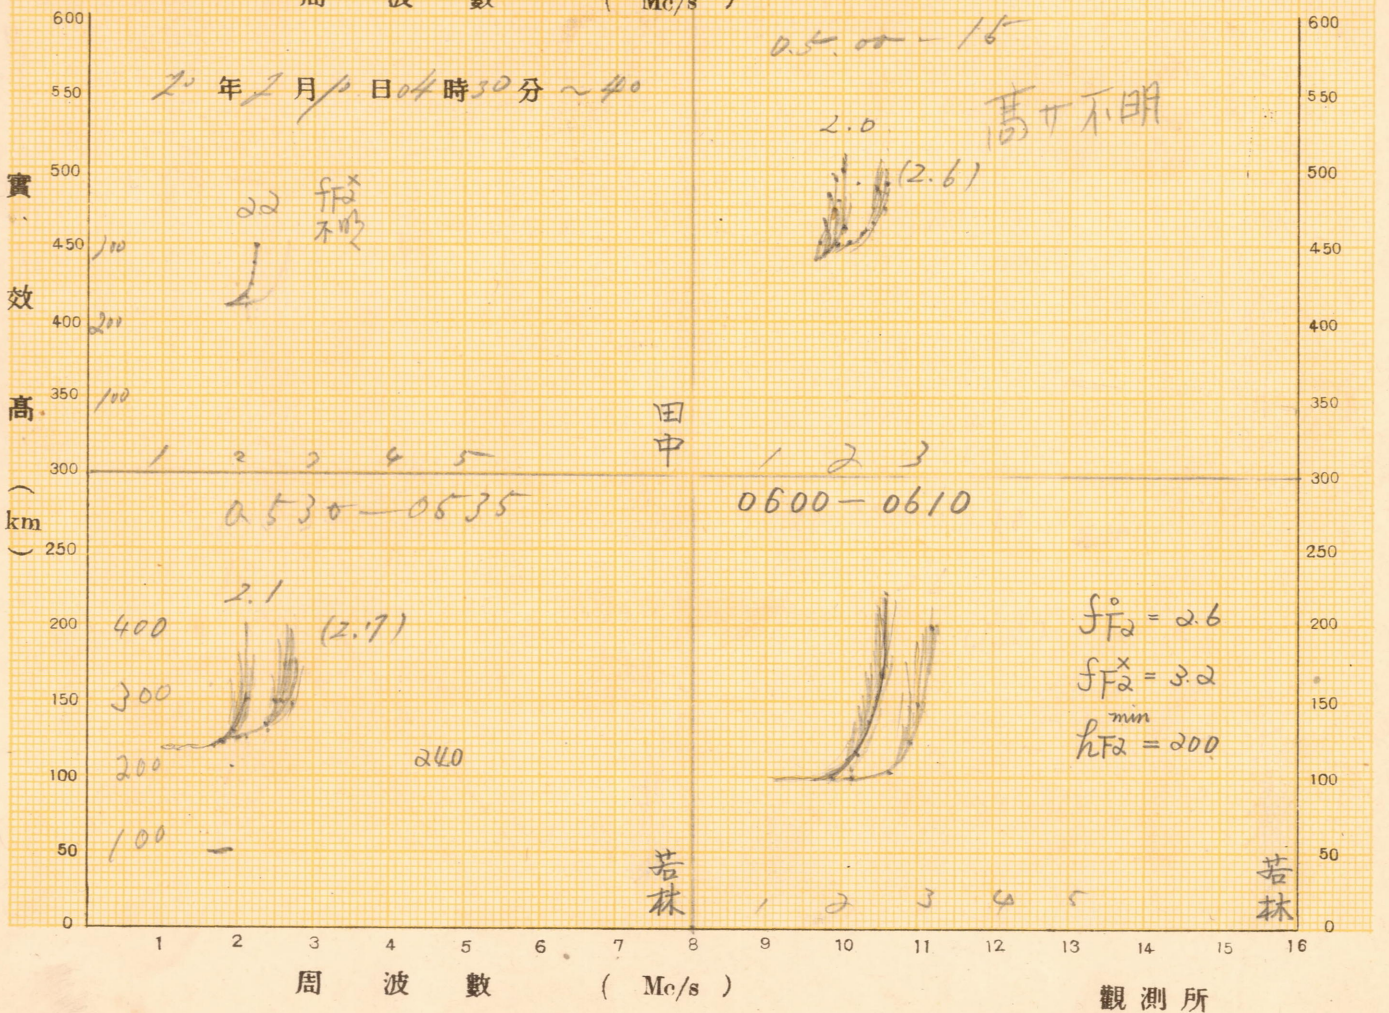 周 波 數 ( Mc/s )
600
550
500
450
400
350
300
250
200
150
100
50
0
實效高(km)
20年2月10日04時30分~40
22
fxF2
不明
300
200
100
1 2 3 4 5
田中
05.00-15
高サ不明
2.0
(2.6)
1 2 3
0530-0535
2.1
(2.7)
400
300
200
100
240
若林
0600-0610
f°F2 = 2.6
fxF2 = 3.2
hminF2 = 200
1 2 3 4 5
若林
600
550
500
450
400
350
300
250
200
150
100
50
0
1 2 3 4 5 6 7 8 9 10 11 12 13 14 15 16
周 波 數 ( Mc/s )
觀測所